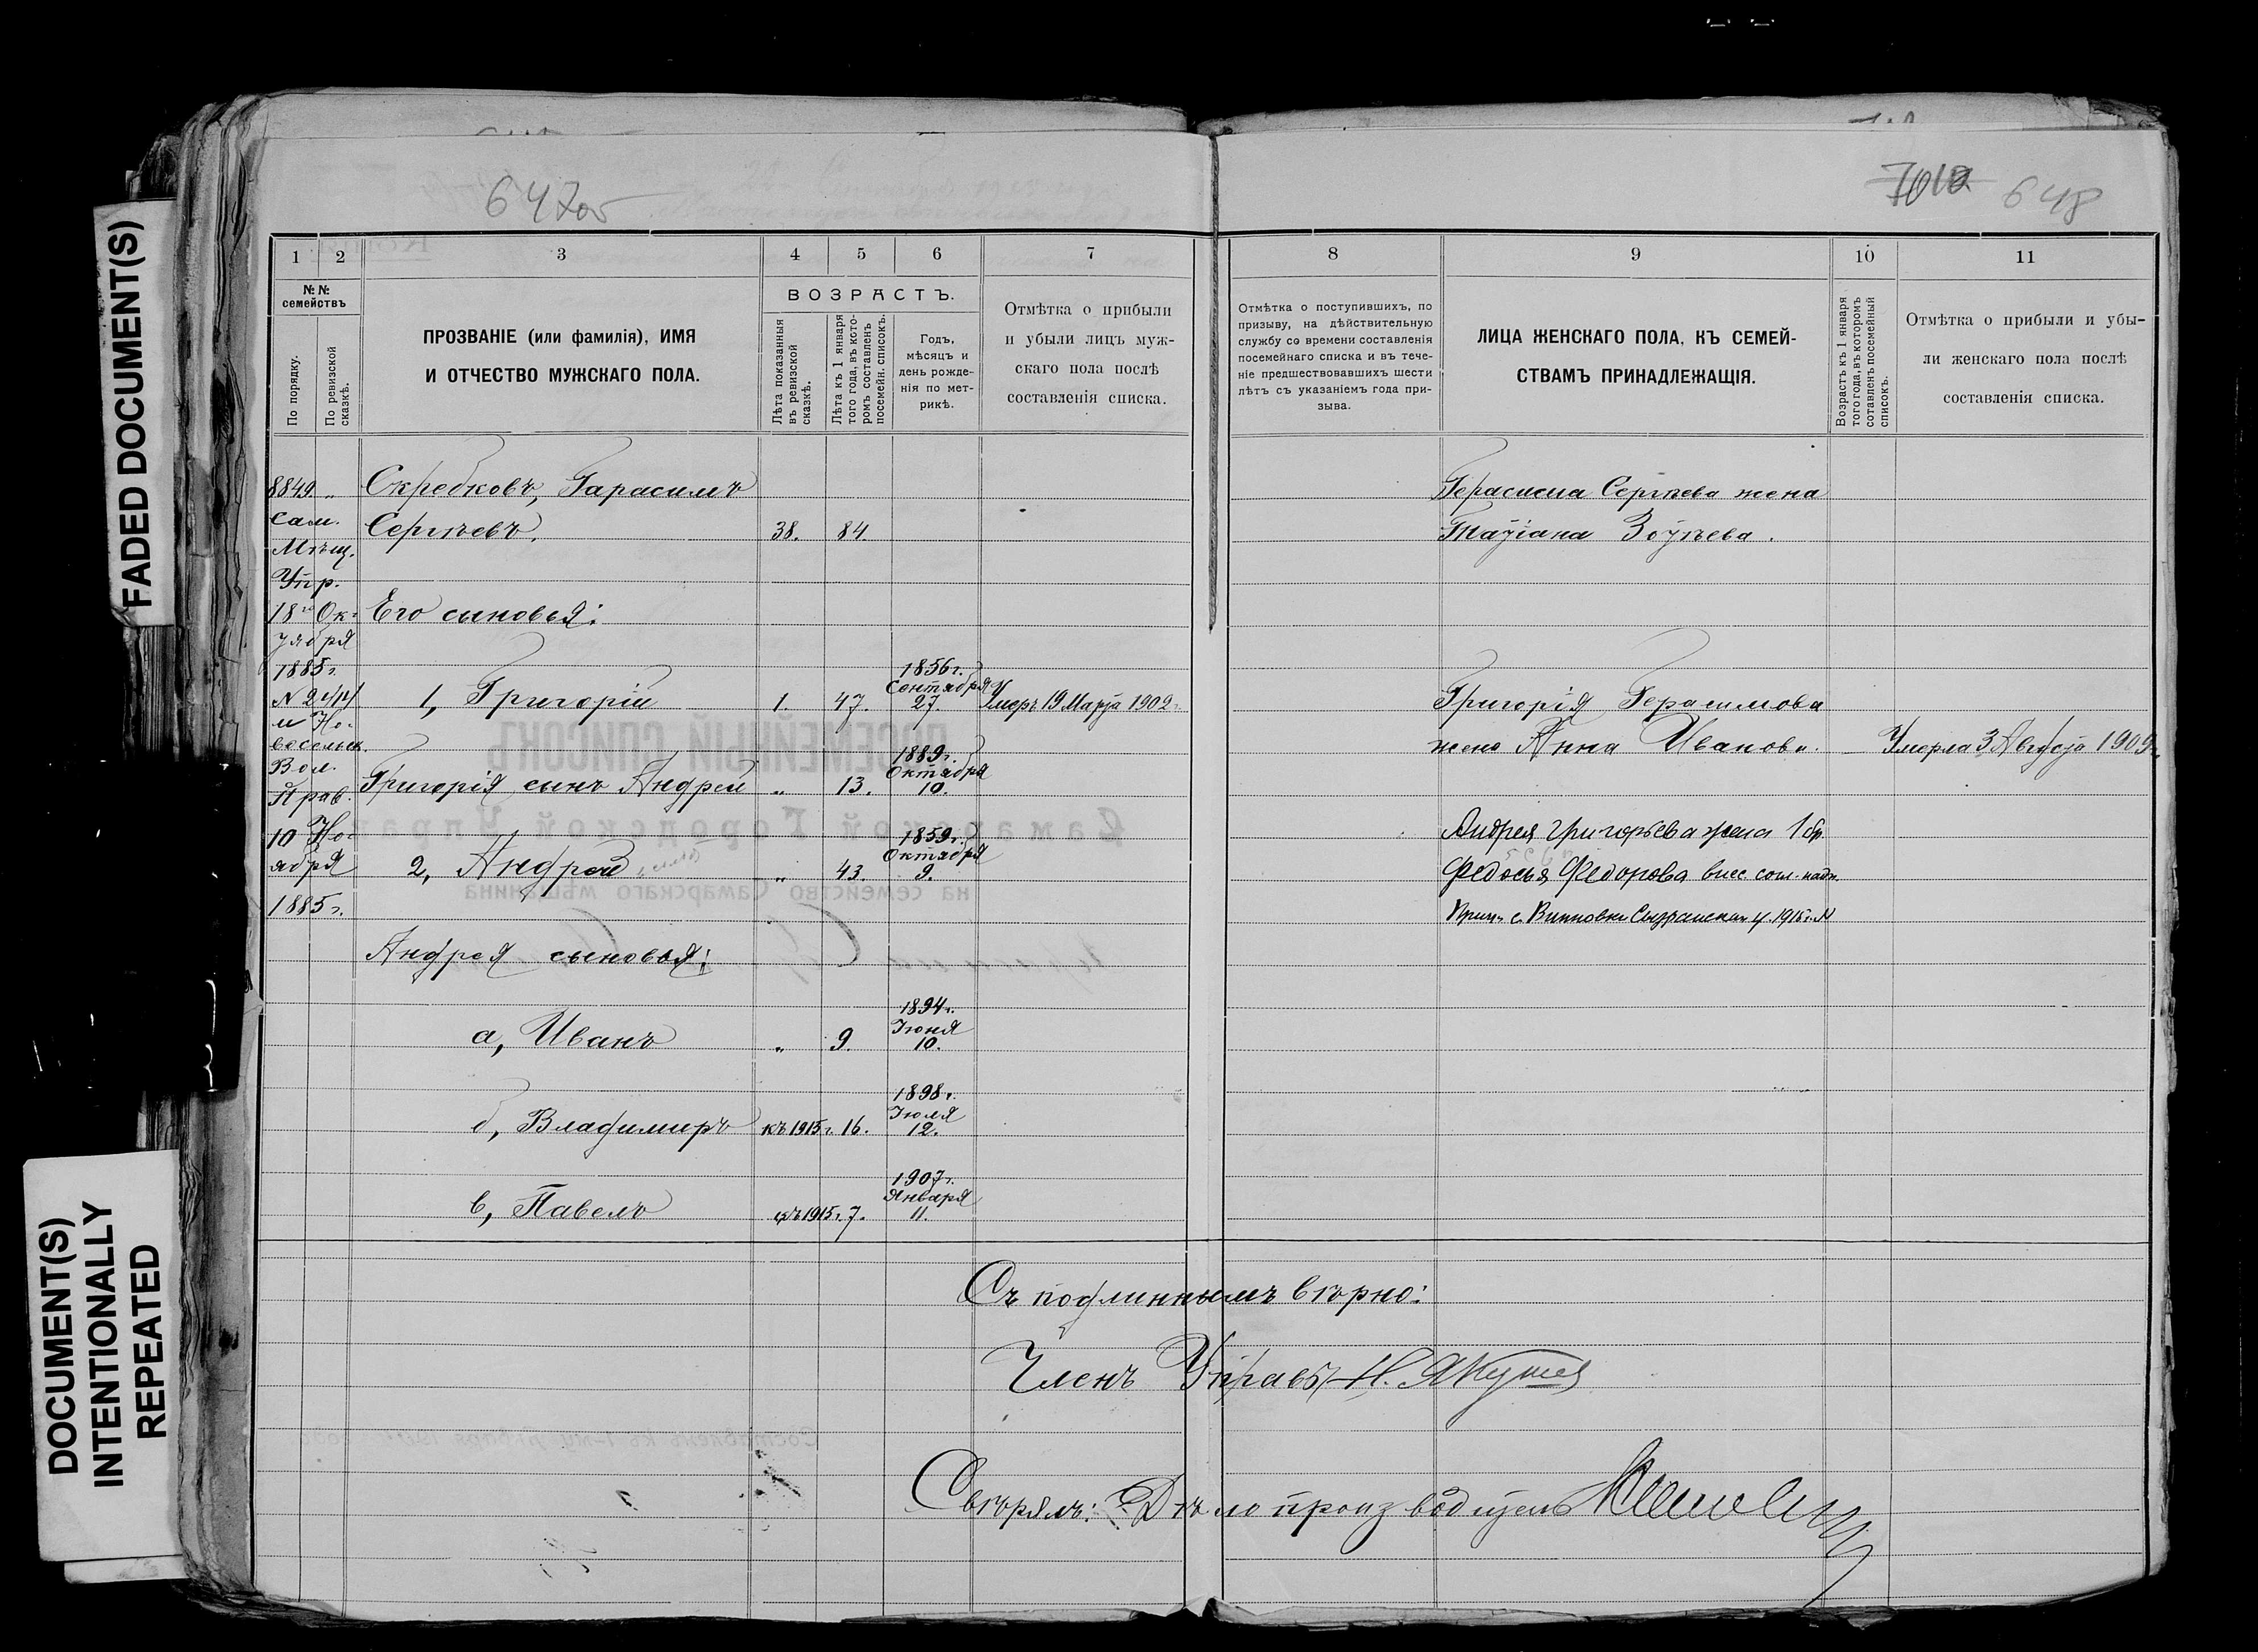 FADED DOCUMENT(S)
DOCUMENT(S)
INTENTIONALLY
REPEATED
647об
648
1
2
3
4
5
6
7
№№
семействъ
По порядку.
По ревизской
сказкѣ.
ПРОЗВАНІЕ (или фамилія), ИМЯ
И ОТЧЕСТВО МУЖСКАГО ПОЛА.
ВОЗРАСТЪ.
Лѣта показанныя
въ ревизской
сказкѣ.
Лѣта къ 1 января
того года, въ кото-
ромъ составленъ
посемейн. списокъ.
Годъ,
мѣсяцъ и
день рожде-
нія по мет-
рикѣ.
Отмѣтка о прибыли
и убыли лицъ муж-
скаго пола послѣ
составленія списка.
8849 „
Сам.
Мѣщ.
Упр.
18го Ок-
тября
1885 г.
и Но-
восельск.
Вол.
Прав.
10 Но-
ября
1885 г.
Скребковъ, Гарасимъ
Сергѣевъ. 38. 84.
Его сыновья:
1, Григорій 1. 47. 1856 г. Сентября 27. Умеръ 19 Марта 1902 г.
Григорія сынъ Андрей „ 13. 1889 г. Октября 10.
2, Андрей „ 43. 1859 г. Октября 9.
Андрея сыновья:
а, Иванъ „ 9. 1894 г. Іюня 10.
б, Владимиръ къ 1915 г. 16. 1898 г. Іюля 12.
в, Павелъ къ 1915 г. 7. 1907 г. Января 11.
8
9
10
11
Отмѣтка о поступившихъ, по
призыву, на дѣйствительную
службу со времени составленія
посемейнаго списка и въ тече-
ніе предшествовавшихъ шести
лѣтъ съ указаніемъ года при-
зыва.
ЛИЦА ЖЕНСКАГО ПОЛА, КЪ СЕМЕЙ-
СТВАМЪ ПРИНАДЛЕЖАЩІЯ.
Возрастъ къ 1 января
того года, въ которомъ
составленъ посемейный
списокъ.
Отмѣтка о прибыли и убы-
ли женскаго пола послѣ
составленія списка.
Герасима Сергѣева жена
Татіана Зотѣева.
Григорія Герасимова
жена Анна Иванова. Умерла 3 Августа 1909 г.
Андрея Григорьева жена 1 бр.
Федосья Федорова внес. согл.
с. Винновки Сызранскаго у. 1915 г. №
Съ подлиннымъ вѣрно:
Членъ Управы Н. Якушев
Свѣрялъ: Дѣлопроизводитель